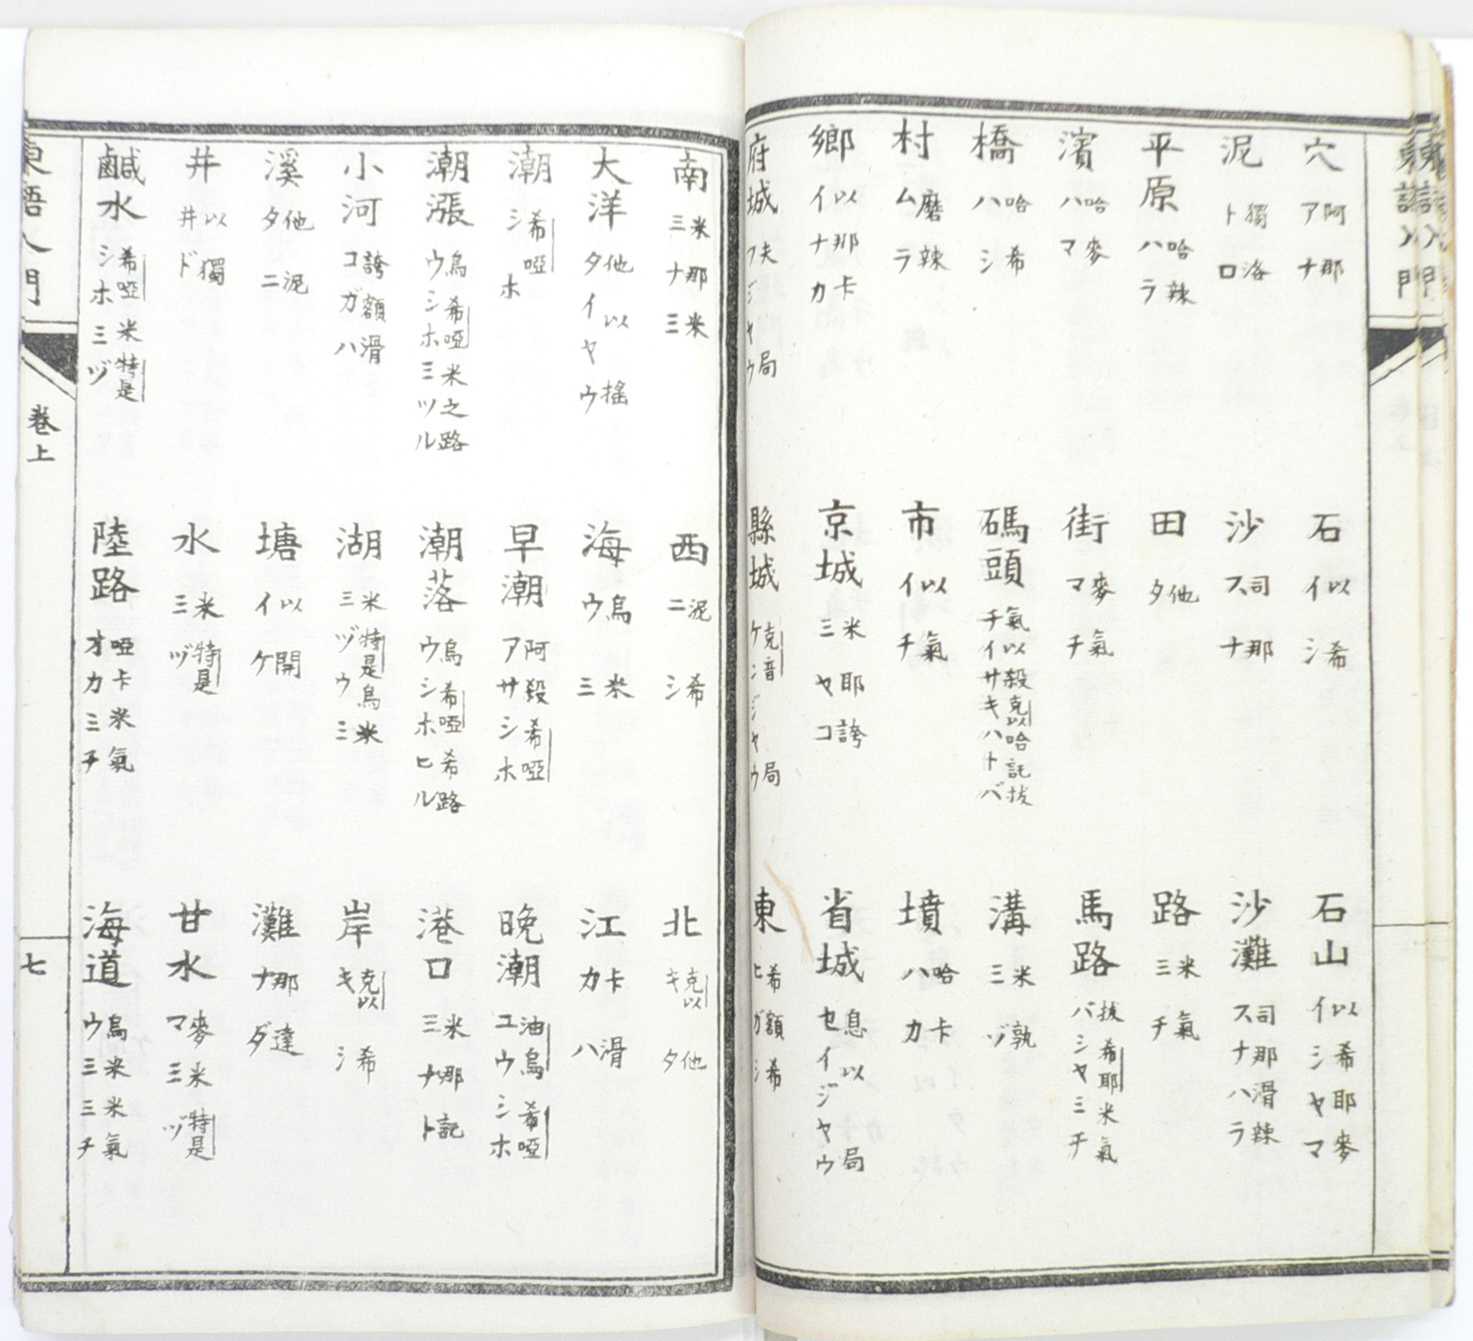 東語入門
穴 阿那 アナ 石 以希 イシ 石山 以希耶麥 イシヤマ
泥 獨洛 トロ 沙 司那 スナ 沙灘 司那滑辣 スナハラ
平原 哈辣 ハラ 田 他 タ 路 米氣 ミチ
濱 哈麥 ハマ 街 麥氣 マチ 馬路 拔希耶米氣 バシヤミチ
橋 哈希 ハシ 碼頭 氣以殺克以哈託拔 チイサキハトバ 溝 米孰 ミヅ
村 磨辣 ムラ 市 以氣 イチ 墳 哈卡 ハカ
鄉 以那卡 イナカ 京城 米耶誇 ミヤコ 省城 息以局 セイジヤウ
府城 夫局 フジヤウ 縣城 克音局 ケンジヤウ 東 希額希 ヒガシ
南 米那米 ミナミ 西 泥希 ニシ 北 克以他 キタ
大洋 他以搖 タイヤウ 海 烏米 ウミ 江 卡滑 カハ
潮 希啞 シホ 早潮 阿殺希啞 アサシホ 晚潮 油烏希啞 ユウシホ
潮漲 烏希啞米之路 ウシホミツル 潮落 烏希啞希路 ウシホヒル 港口 米那託 ミナト
小河 誇額滑 コガハ 湖 米特是烏米 ミヅウミ 岸 克以希 キシ
溪 他泥 タニ 塘 以開 イケ 灘 那達 ナダ
井 以獨 井ド 水 米特是 ミヅ 甘水 麥米特是 マミヅ
鹹水 希啞米特是 シホミヅ 陸路 啞卡米氣 オカミチ 海道 烏米米氣 ウミミチ
東語入門 卷上 七